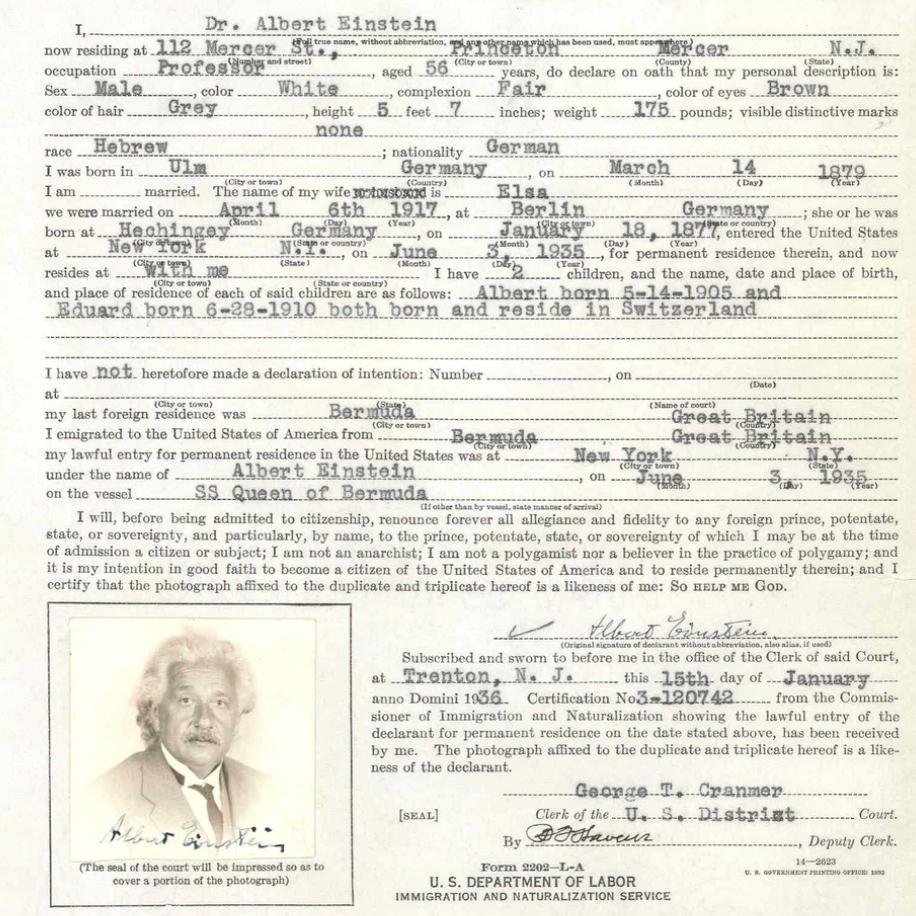 I, Dr. Albert Einstein
(Full true name, without abbreviation, and any other name which has been used, must appear here)
now residing at 112 Mercer St., Princeton Mercer N.J.
(Number and street) (City or town) (County) (State)
occupation Professor, aged 56 years, do declare on oath that my personal description is:
Sex Male, color White, complexion Fair, color of eyes Brown
color of hair Grey, height 5 feet 7 inches; weight 175 pounds; visible distinctive marks
none
race Hebrew; nationality German
I was born in Ulm Germany, on March 14 1879
(City or town) (Country) (Month) (Day) (Year)
I am married. The name of my wife is Elsa
we were married on April 6th 1917, at Berlin Germany; she or he was
(Month) (Day) (Year) (City or town) (State or country)
born at Hechingey Germany, on January 18, 1877, entered the United States
(City or town) (State or country) (Month) (Day) (Year)
at New York N.Y., on June 3, 1935, for permanent residence therein, and now
(City or town) (State) (Month) (Day) (Year)
resides at with me I have 2 children, and the name, date and place of birth,
(City or town) (State or country)
and place of residence of each of said children are as follows: Albert born 5-14-1905 and
Eduard born 6-28-1910 both born and reside in Switzerland
I have not heretofore made a declaration of intention: Number, on
(Date)
at
(City or town) (State) (Name of court)
my last foreign residence was Bermuda Great Britain
(City or town) (Country)
I emigrated to the United States of America from Bermuda Great Britain
(City or town) (Country)
my lawful entry for permanent residence in the United States was at New York N.Y.
(City or town) (State)
under the name of Albert Einstein, on June 3, 1935
(Month) (Day) (Year)
on the vessel SS Queen of Bermuda
(If other than by vessel, state manner of arrival)
I will, before being admitted to citizenship, renounce forever all allegiance and fidelity to any foreign prince, potentate,
state, or sovereignty, and particularly, by name, to the prince, potentate, state, or sovereignty of which I may be at the time
of admission a citizen or subject; I am not an anarchist; I am not a polygamist nor a believer in the practice of polygamy; and
it is my intention in good faith to become a citizen of the United States of America and to reside permanently therein; and I
certify that the photograph affixed to the duplicate and triplicate hereof is a likeness of me: SO HELP ME GOD.
Albert Einstein
(Original signature of declarant without abbreviation, also alias, if used)
Subscribed and sworn to before me in the office of the Clerk of said Court,
at Trenton, N. J. this 15th day of January
anno Domini 1936 Certification No 3-120742 from the Commis-
sioner of Immigration and Naturalization showing the lawful entry of
the declarant for permanent residence on the date stated above, has been received
by me. The photograph affixed to the duplicate and triplicate hereof is a like-
ness of the declarant.
George T. Cranmer
[SEAL] Clerk of the U. S. District Court.
By, Deputy Clerk.
Albert Einstein
(The seal of the court will be impressed so as to
cover a portion of the photograph)
Form 2202-L-A
U. S. DEPARTMENT OF LABOR
IMMIGRATION AND NATURALIZATION SERVICE
14-2623
U. S. GOVERNMENT PRINTING OFFICE: